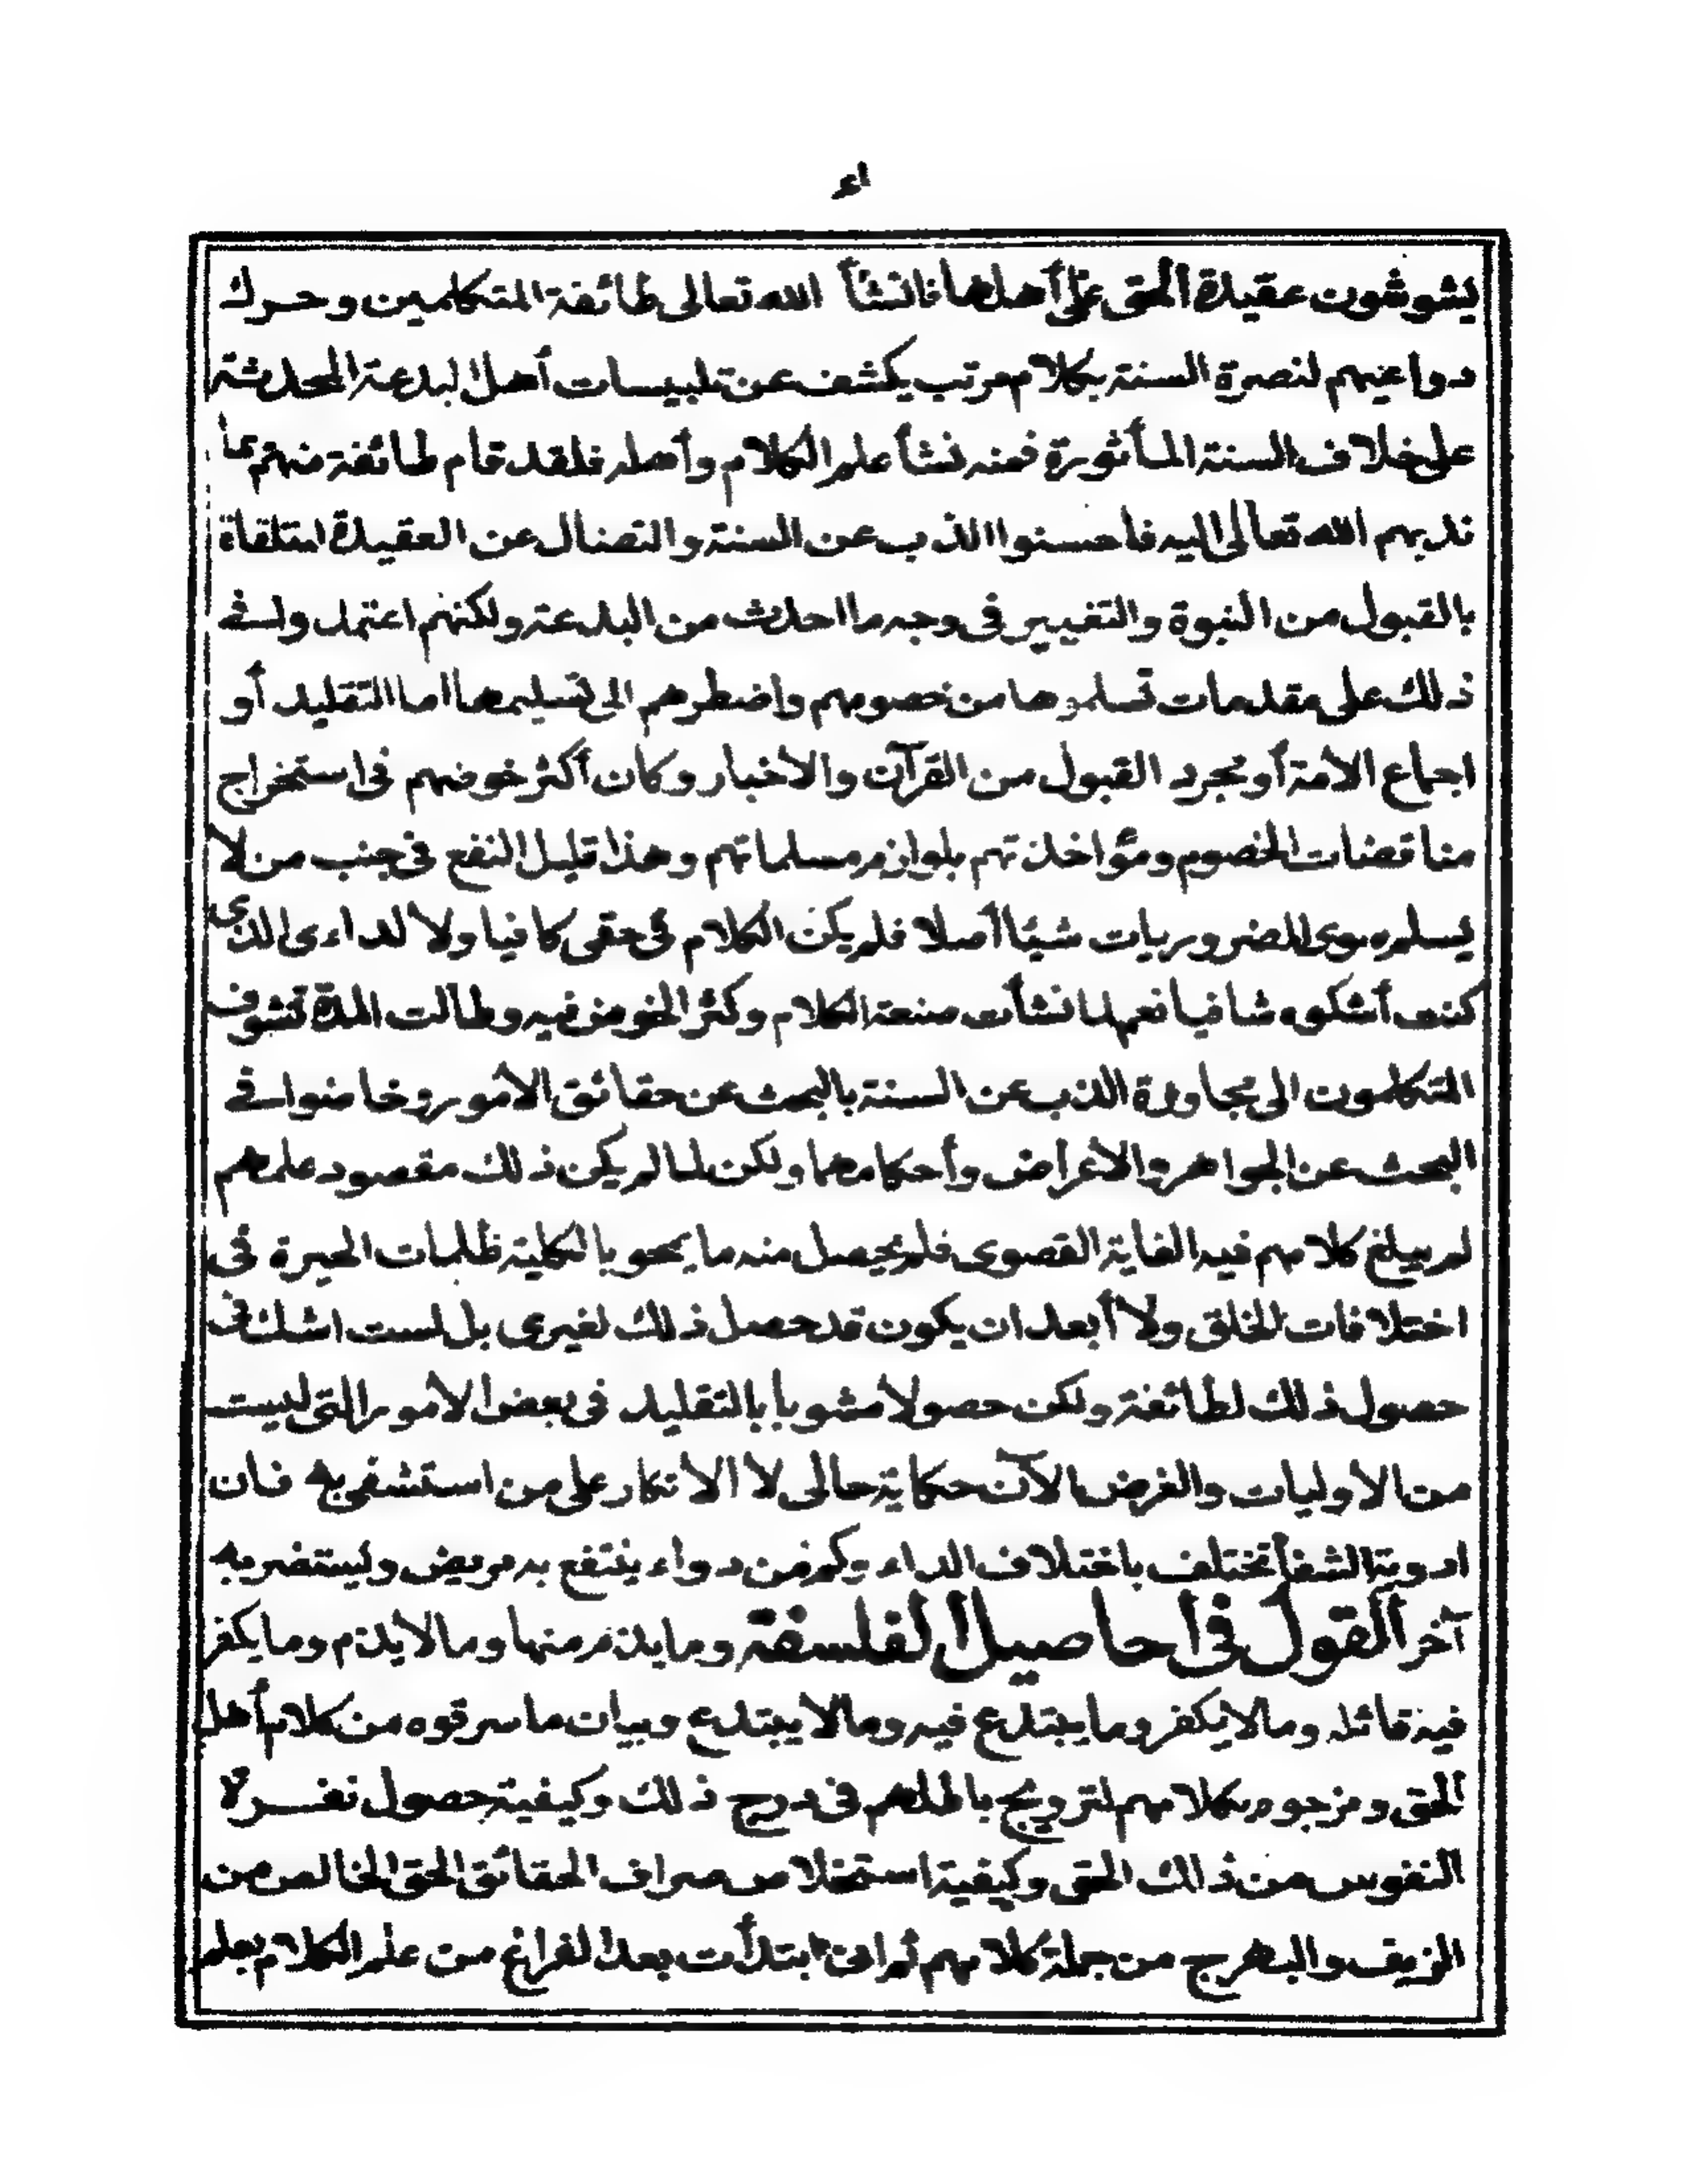 يشوشون عقيدة الحق على أهلها فانشأ الله تعالى طائفة المتكلمين وحرك
دواعيهم لنصرة السنة بكلام مرتب يكشف عن تلبيسات أهل البدعة المحدثة
على خلاف السنة المأثورة فمنه نشأ علم الكلام وأهله فلقد قام طائفة منهم بما
ندبهم الله تعالى اليه فأحسنوا الذب عن السنة والنضال عن العقيدة المتلقاة
بالقبول من النبوة والتغيير فى وجه ما احدث من البدعة ولكنهم اعتمدوا فى
ذلك على مقدمات تسلموها من خصومهم واضطرهم الى تسليمها اما التقليد أو
اجماع الأمة أو مجرد القبول من القرآن والاخبار وكان أكثر خوضهم فى استخراج
مناقضات الخصوم ومؤاخذتهم بلوازم مسلماتهم وهذا قليل النفع فى جنب من لا
يسلم سوى الضروريات شيئا أصلا فلم يكن الكلام فى حقى كافيا ولا لداءى الذى
كنت أشكوه شافيا نعم لما نشأت صنعة الكلام وكثر الخوض فيه وطالت المدة تشوف
المتكلمون الى مجاوزة الذب عن السنة بالبحث عن حقائق الأمور وخاضوا فى
البحث عن الجواهر والاعراض وأحكامها ولكن لما لم يكن ذلك مقصود علمهم
لم يبلغ كلامهم فيه الغاية القصوى فلم يحصل منه ما يمحو بالكلية ظلمات الحيرة فى
اختلافات الخلق ولا أبعد ان يكون قد حصل ذلك لغيرى بل لست اشك فى
حصول ذلك لطائفة ولكن حصولا مشوبا بالتقليد فى بعض الأمور التى ليست
من الأوليات والغرض الآن حكاية حالى لا الانكار على من استشفى به فان
ادوية الشفأ تختلف باختلاف الداء وكم من دواء ينتفع به مريض ويستضر به
آخر القول فى احاصيل الفلسفة وما يذم منها وما لا يذم وما يكفر
فيه قائله وما لا يكفر وما يبتدع فيه وما لا يبتدع وبيان ما سرقوه من كلام أهل
الحق ومزجوه بكلامهم لترويج باطلهم فى درج ذلك وكيفية حصول نفرة
النفوس من ذلك الحق وكيفية استخلاص صراف الحقائق الحق الخالص من
الزيف والبهرج من جملة كلامهم ثم انى ابتدأت بعد الفراغ من علم الكلام بعلم